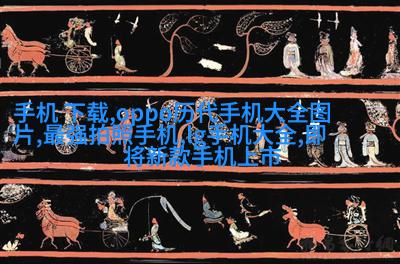 手机 下载,oppo历代手机大全图
片,最强拍照手机,lg手机大全,即
将新款手机上市